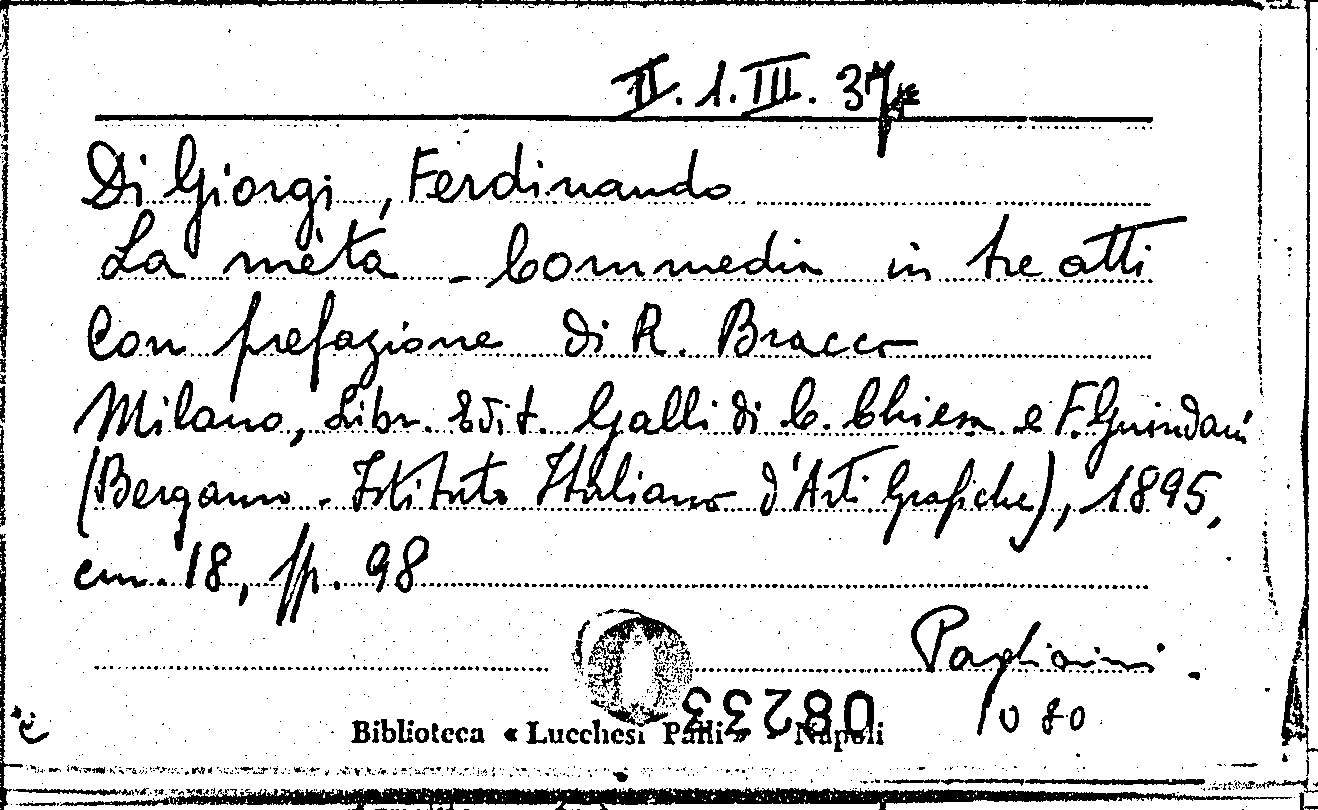 II. 1. III. 37
Di Giorgi, Ferdinando
La mèta - Commedia in tre atti
Con prefazione di R. Bracco
Milano, Libr. Edit. Galli di C. Chiesa e F. Guindani
(Bergamo - Istituto Italiano d'Arti Grafiche), 1895,
cm. 18, pp. 98
Pagliaini.
1080
08233
Biblioteca « Lucchesi Palli » - Napoli